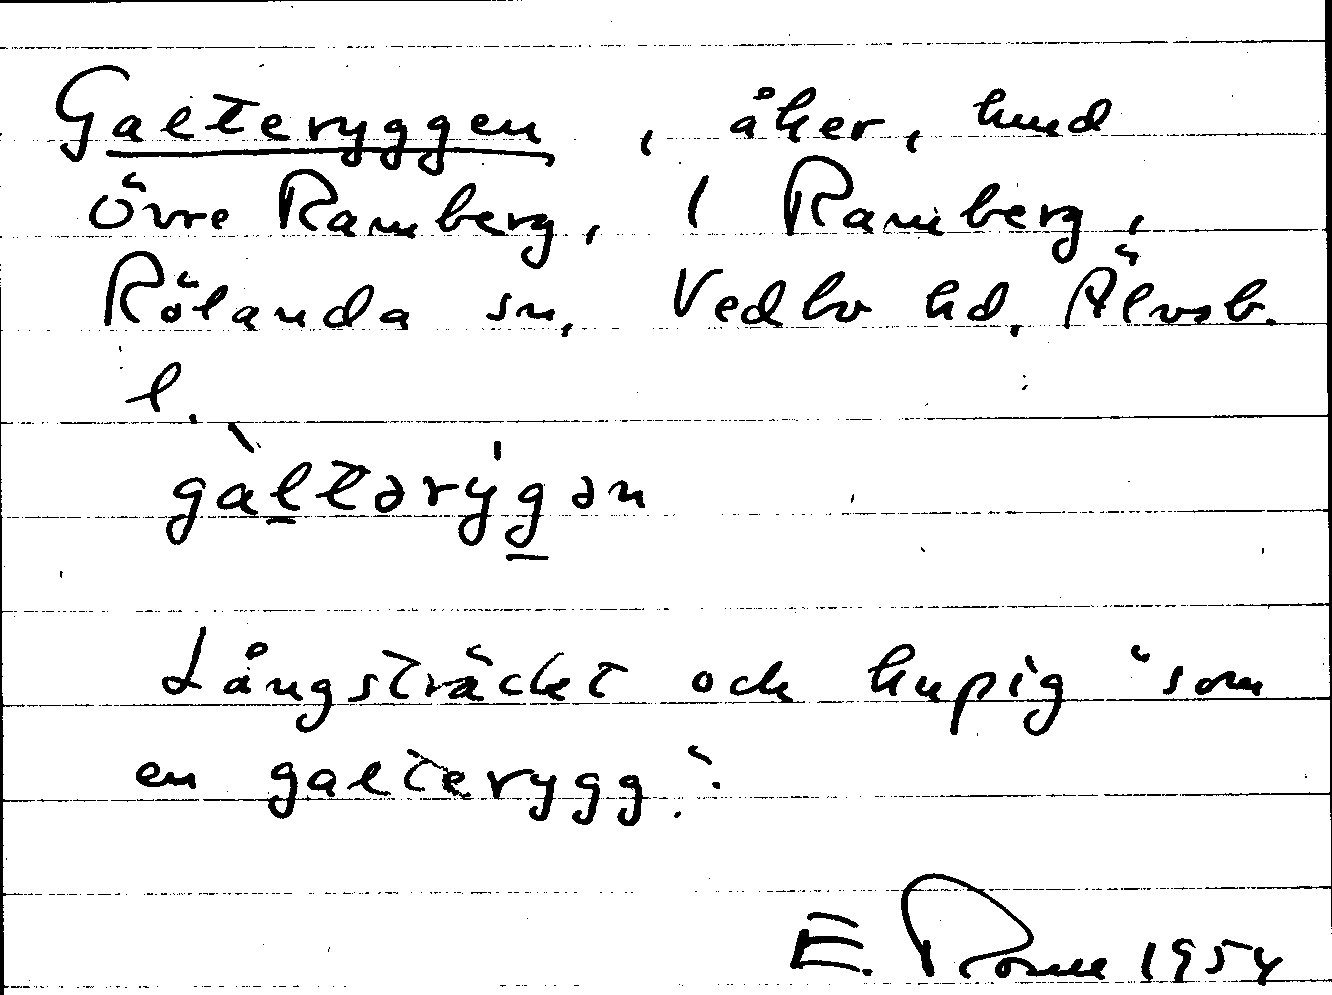 Galteryggen, åker, hmd
Övre Ramberg, 1 Ramberg,
Rölanda sn, Vedbo hd, Älvsb.
l.
gàltərýgən
Långsträckt och kupig "som
en galterygg".
E. 1954